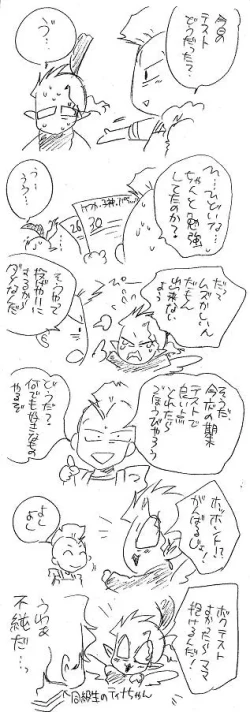 今日の
テスト
どうだった？
う゛…
ひ…ひどいな…
ちゃんと勉強
してたのか？
う…
うう…
26
30
だって
ムズかしいん
だもん
出来ない
よう
そうやって
投げやりに
するから
ダメなんだ
そうだ、
今度の期末
テストで
良い点
とれたら
ごほうびやろう
どうだ？
何でも好きなもの
やるぞ
ホッホント!?
がんばるじょ!
よし
よし
ボクテスト
すか
ママ
うわぁ
不純だ…っ
同級生のティナちゃん